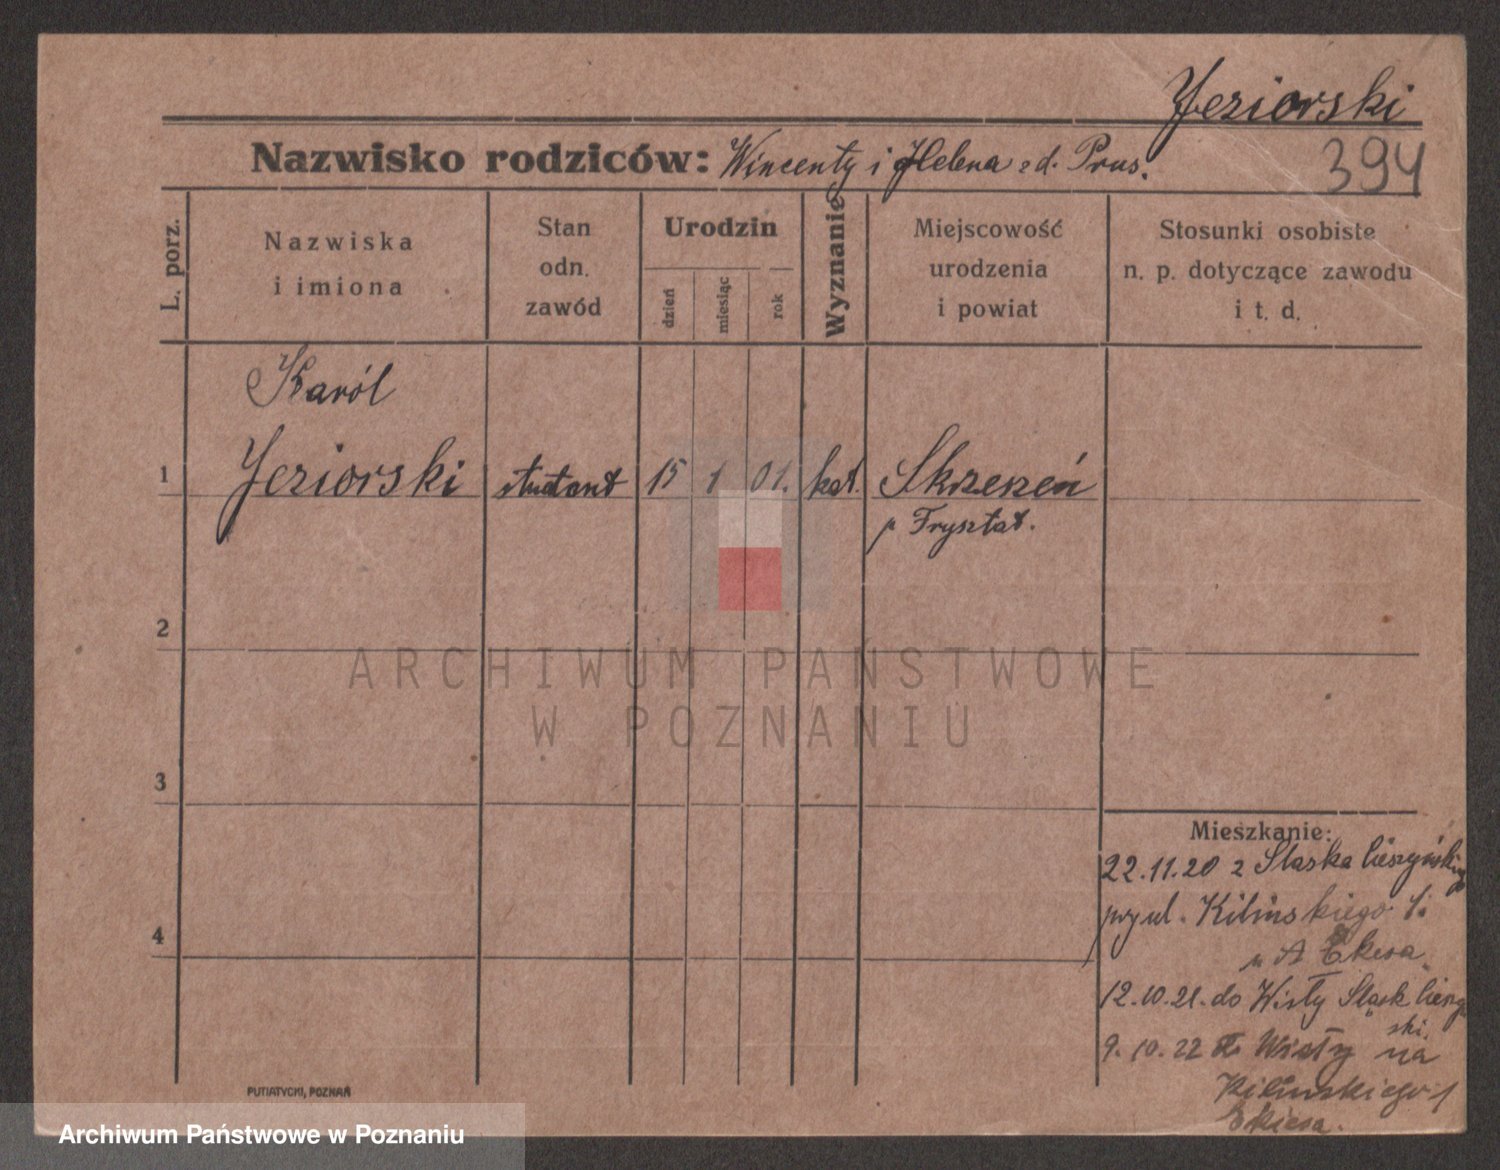 Jeziorski
Nazwisko rodziców: Wincenty i Helena zd. Prus.
394
L. porz.
Nazwiska
i imiona
Stan
odn.
zawód
Urodzin
dzień
miesiąc
rok
Wyznanie
Miejscowość
urodzenia
i powiat
Stosunki osobiste
n. p. dotyczące zawodu
i t. d.
Karól
1 Jeziorski student 15 1 01. kat. Skrzeczeń
p Frysztat.
2
ARCHIWUM PAŃSTWOWE
W POZNANIU
3
Mieszkanie:
22.11.20 z Śląska Cieszyńskiego
przy ul. Kilińskiego 1.
u A
4
12.10.21. do Wisły Śląsk Cieszy
ski.
9.10.22 z Wisły na
Kilińskiego 1
PUTIATYCKI, POZNAŃ
Archiwum Państwowe w Poznaniu